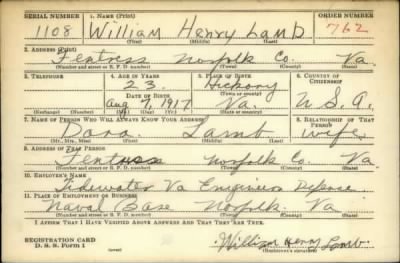 SERIAL NUMBER 1. NAME (Print) ORDER NUMBER
1108 William Henry Lamb 762
(First) (Middle) (Last)
2. ADDRESS (Print)
Fentress Norfolk Co. Va.
(Number and street or R. F. D. number) (Town) (County) (State)
3. TELEPHONE 4. AGE IN YEARS 5. PLACE OF BIRTH 6. COUNTRY OF CITIZENSHIP
23 Hickory
DATE OF BIRTH (Town or county)
Aug 7, 1917 Va. U.S.A.
(Exchange) (Number) (Mo.) (Day) (Yr.) (State or country)
7. NAME OF PERSON WHO WILL ALWAYS KNOW YOUR ADDRESS 8. RELATIONSHIP OF THAT PERSON
Dora Lamb wife
(Mr., Mrs., Miss) (First) (Middle) (Last)
9. ADDRESS OF THAT PERSON
Fentress Norfolk Co. Va
(Number and street or R. F. D. number) (Town) (County) (State)
10. EMPLOYER'S NAME
Tidewater Va Engineers Defense
11. PLACE OF EMPLOYMENT OR BUSINESS
Naval Base Norfolk. Va
(Number and street or R. F. D. number) (Town) (County) (State)
I AFFIRM THAT I HAVE VERIFIED ABOVE ANSWERS AND THAT THEY ARE TRUE.
REGISTRATION CARD
D. S. S. Form 1 William Henry Lamb
(Registrant's signature)